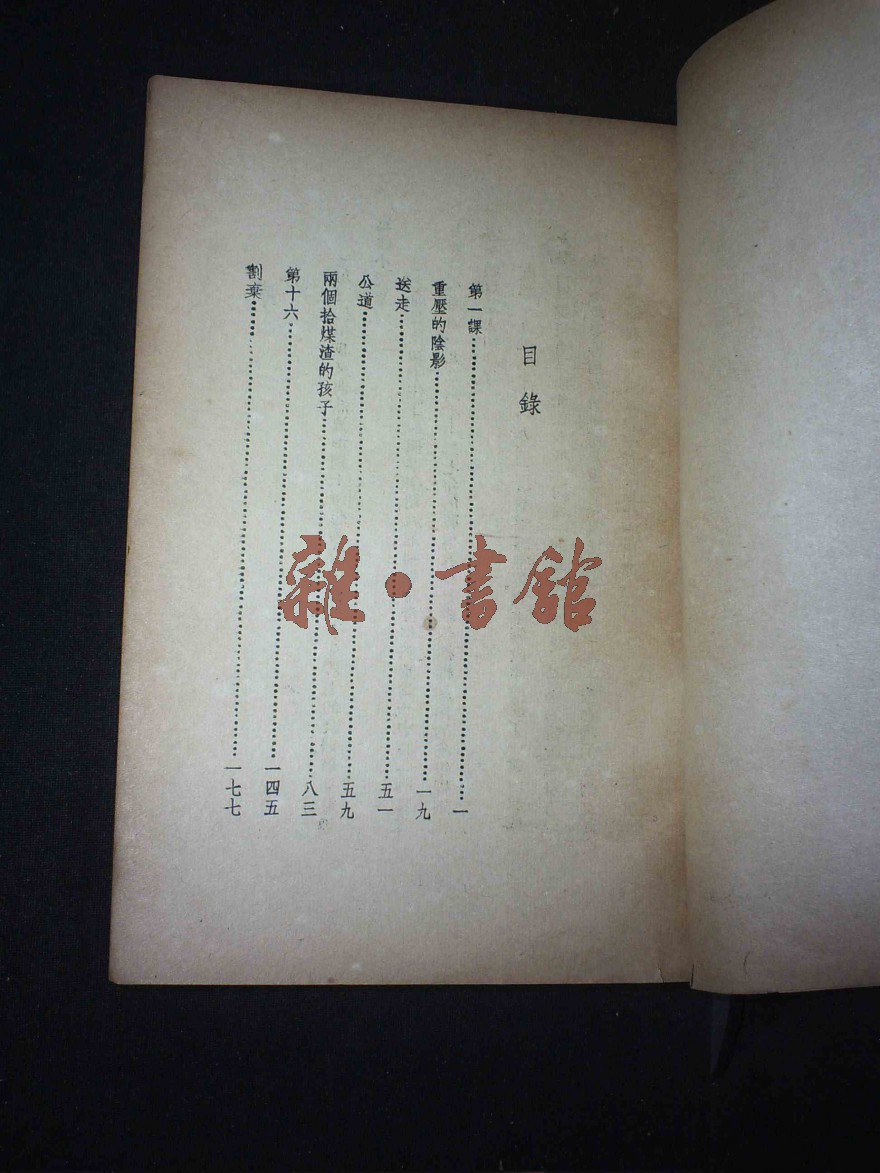 目錄
第一課……一
重壓的陰影……一九
送走……五一
公道……五九
兩個拾煤渣的孩子……八三
第十六……一四五
割棄……一七七
雜·書館